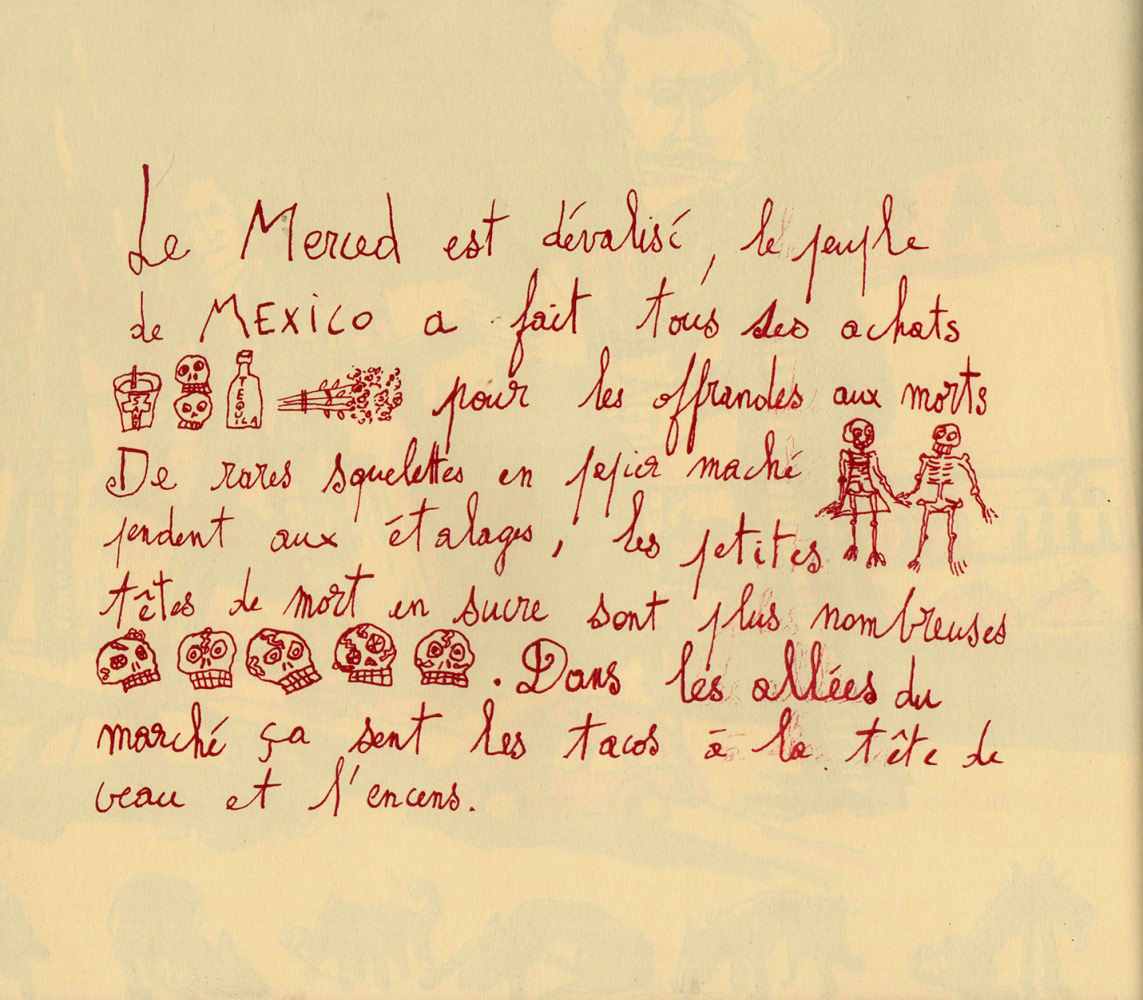 Le Merced est dévalisé, le peuple
de MEXICO a fait tous ses achats
TEQUILA pour les offrandes aux morts
De rares squelettes en papier maché
pendent aux étalages, les petites
têtes de mort en sucre sont plus nombreuses
. Dans les allées du
marché ça sent les tacos à la tête de
veau et l'encens.